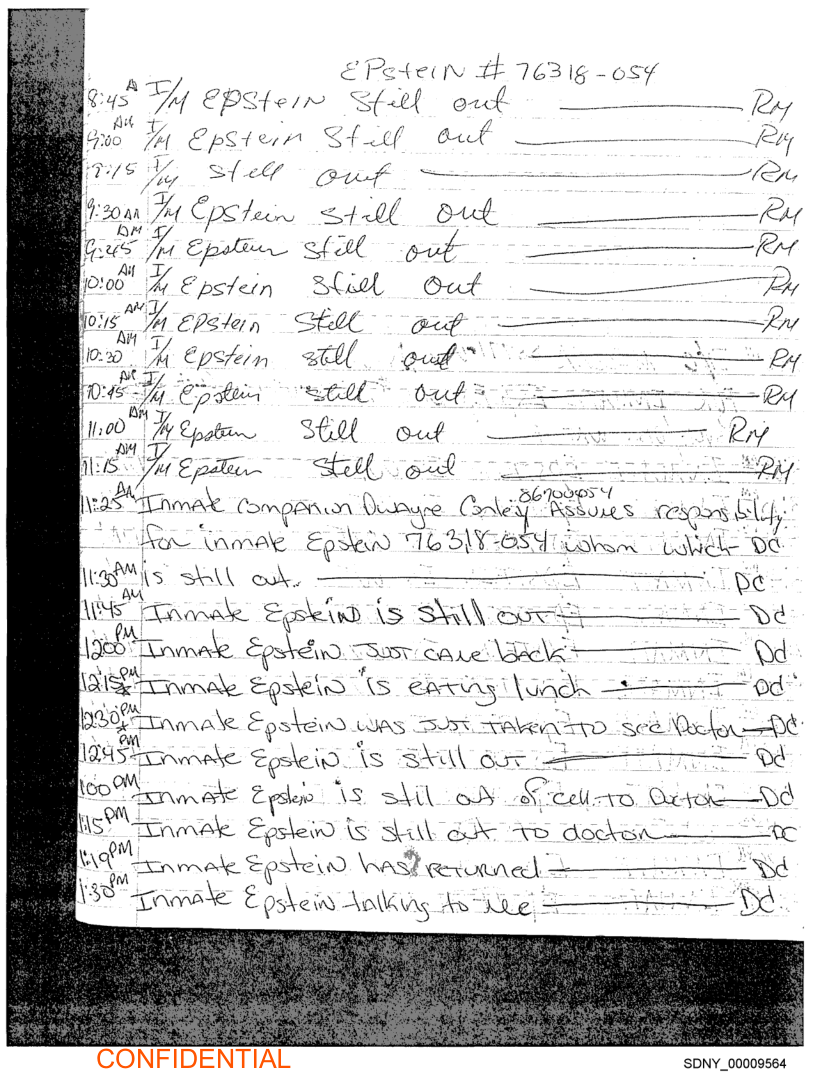 EPsteiN # 76318-054
8:45 A I/M EPStein Still out RM
9:00 AM I/M Epstein Still out RM
9:15 I/M still out RM
9:30 AM I/M Epstein still out RM
9:45 AM I/M Epstein still out RM
10:00 AM I/M Epstein still out RM
10:15 AM I/M EPstein Still out RM
10:30 AM I/M Epstein still out RM
10:45 AM I/M Epstein still out RM
11:00 AM I/M Epstein Still out RM
11:15 AM I/M Epstein Still out RM
86700054
11:25 AM Inmate Companion Dwayne Conley Assumes responsibility
for inmate Epstein 76318-054 whom which DC
11:30 AM is still out. DC
11:45 AM Inmate Epstein is still out DC
12:00 PM Inmate Epstein just came back DC
12:15 PM * Inmate Epstein is eating lunch DC
12:30 PM * Inmate Epstein was just taken to see Doctor DC
12:45 PM Inmate Epstein is still out DC
1:00 PM Inmate Epstein is still out of cell to Doctor DC
1:15 PM Inmate Epstein is still out to doctor DC
1:19 PM Inmate Epstein has returned DC
1:30 PM Inmate Epstein talking to me DC
CONFIDENTIAL
SDNY_00009564